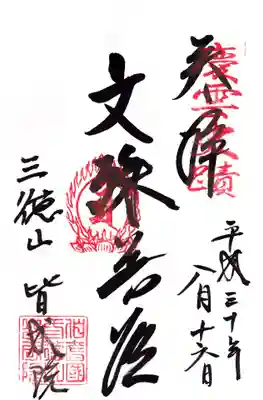 奉拝
平成三十年
八月十六日
文殊菩薩
三徳山
皆成院